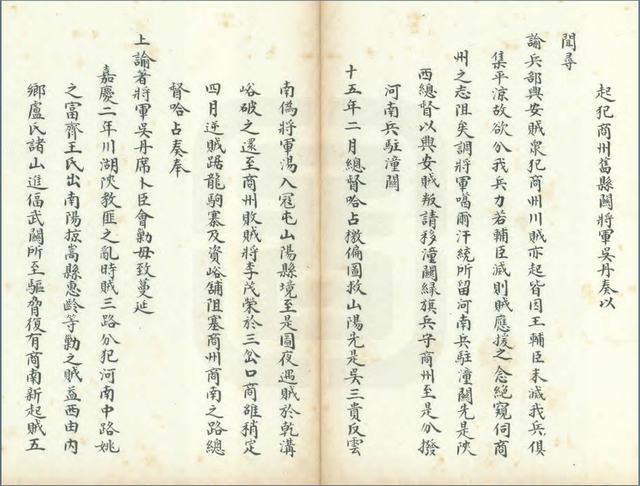 起犯商州舊縣關將軍吳丹奏以
聞尋
諭兵部興安賊衆犯商州川賊亦起皆因王輔臣未滅我兵俱
集平涼故欲分我兵力若輔臣滅則賊應援之念絕窺伺商
州之志阻矣調將軍噶爾汗統所留河南兵駐潼關先是陝
西總督以興安賊叛請移潼關綠旗兵守商州至是分撥
河南兵駐潼關
十五年二月總督哈占檄偏圖救山陽先是吳三貴反雲
南僞將軍湯入冦屯山陽縣境至是圖夜遇賊於乾溝
峪破之還至商州敗賊將李茂榮於三岔口商雒稍定
四月逆賊踞龍駒寨及資峪舖阻塞商州商南之路總
督哈占奏奉
上諭著將軍吳丹席卜臣會勦毋致蔓延
嘉慶二年川湖陝教匪之亂時賊三路分犯河南中路姚
之富齊王氏出南陽掠嵩縣惠齡等勦之賊益西由内
鄉盧氏諸山進偪武關所至驅脅復有商南新起賊五